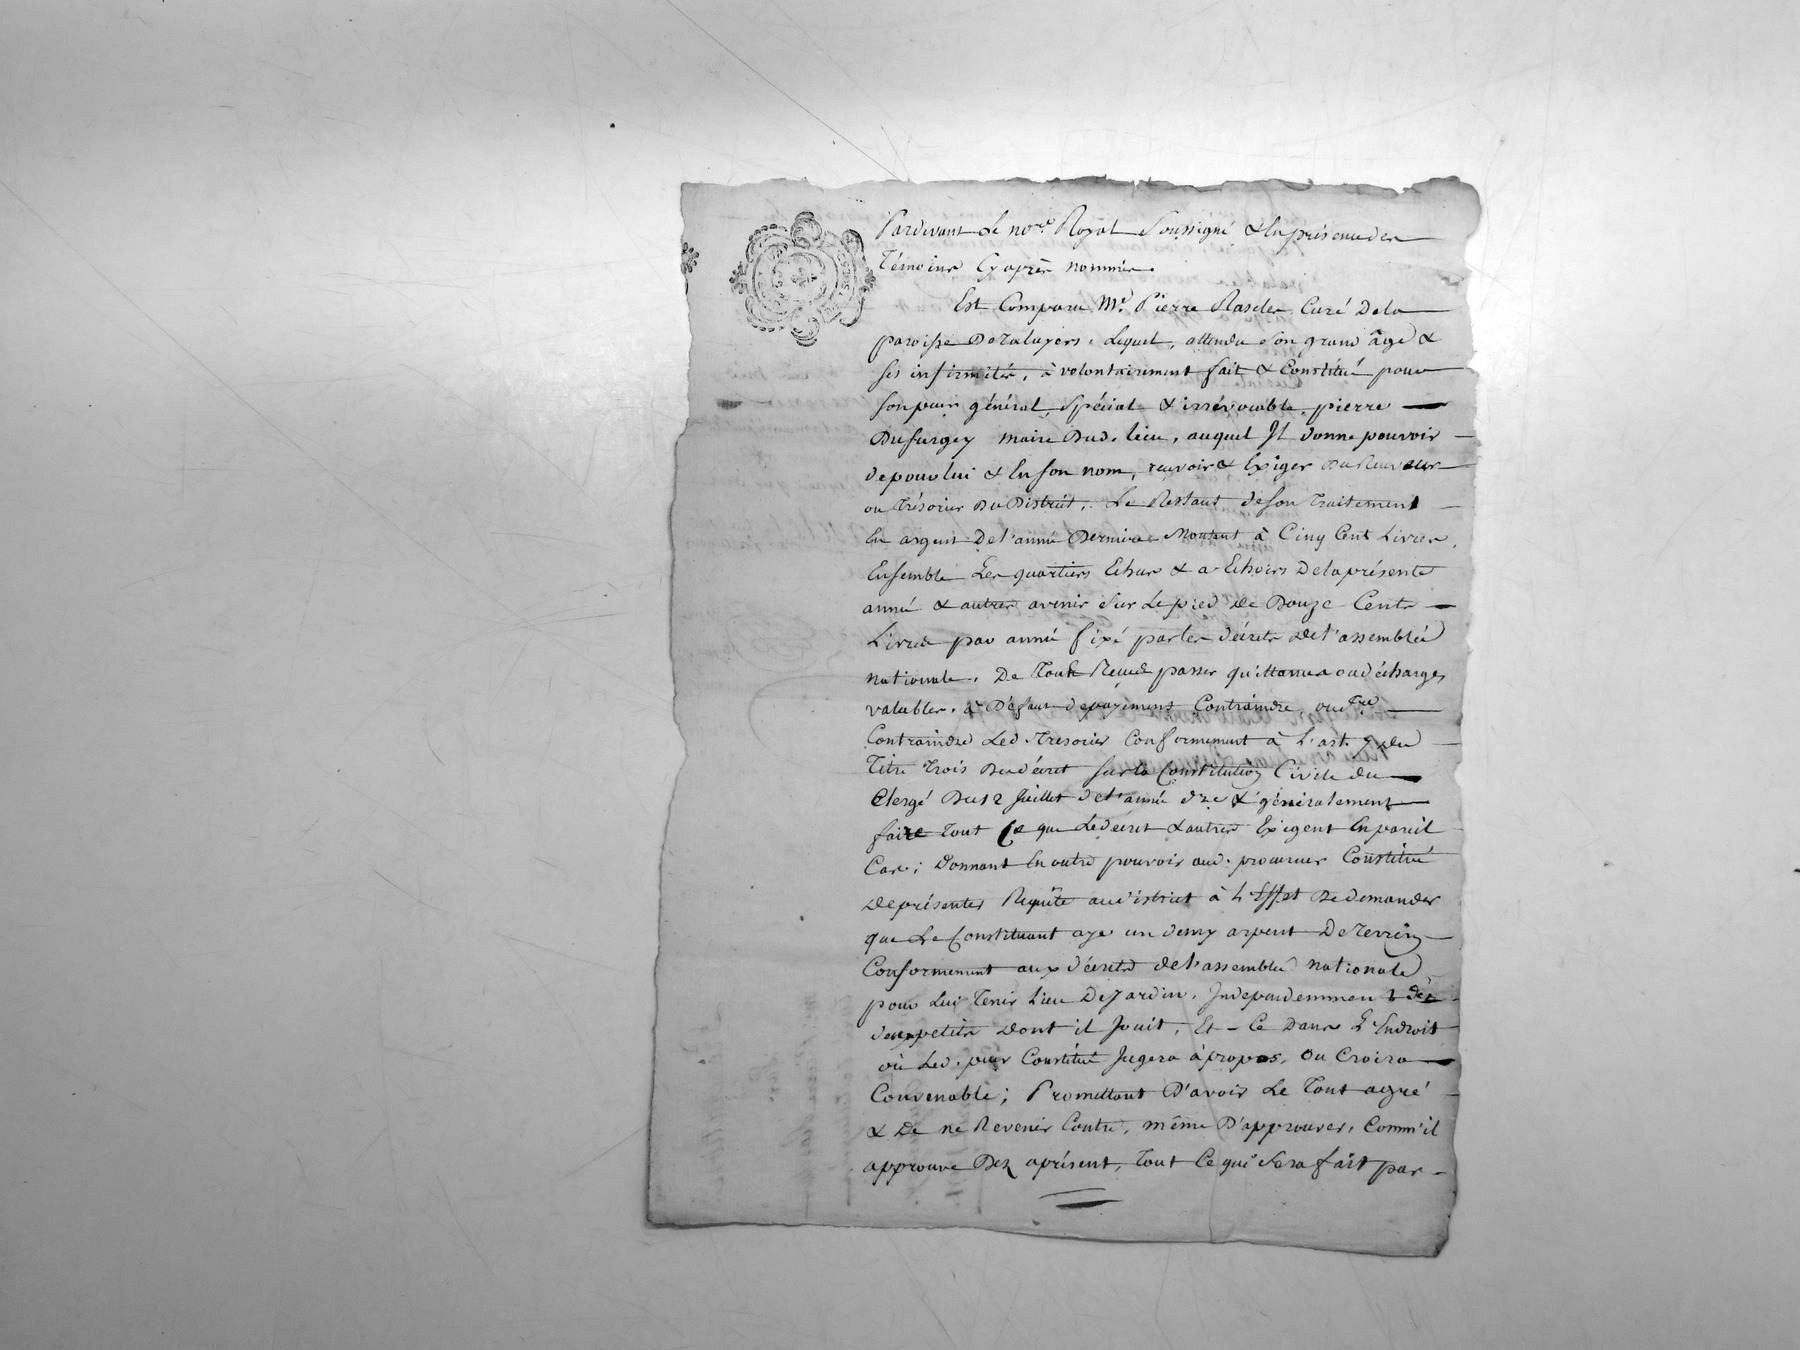 Pardevant Le no.re Royal Soussigné & En présence des
Témoins Cy après nommés.
Est Comparu M.e Pierre Rascler Curé De la
paroisse De Taluyers, Lequel, attendu Son grand âge &
ses infirmités, à volontairement fait & Constitué pour
Son pcur général, Spécial & irrévocable, pierre
Dufurgey maire Dud. lieu, auquel Il donne pouvoir
de pour lui & En Son nom, recevoir & Exiger Du Receveur
ou Trésorier Du District, Le Restant de Son Traitement
En argent De l'année Derniere Montant à Cinq Cent Livres,
Ensemble Les quartiers Echus & a Echoirs De la présente
année & autres avenir Sur Le pied de Douze Cents
Livres par année fixé par les décrets de l'assemblée
nationale. De Tout Recu passer quittances ou décharges
valables. à Défaut de payement Contraindre, ou fre
Contraindre Led. Trésorier Conformement à L'art. 7 du
Titre Trois Du décret Sur la Constitution Civile du
Clergé Du 12 Juillet de l'année dre & généralement
faire Tout Ce que Le décret & autres Exigent En pareil
Cas; Donnant En outre pouvoir aud. procureur Constitué
De présenter Requête au district à L'Effet De demander
que Le Constituant aye un demy arpent De Terrein
Conformement aux décrets de l'assemblée nationale
pour Lui Tenir Lieu De Jardin, Independemment des
deux petits Dont il Jouit, Et Ce Dans L'Endroit
où Led. pcur Constitué Jugera à propos, Ou Croira
Convenable; Promettant D'avoir Le Tout agréé
& De ne Revenir Contre, même D'approuver, Comm'il
approuve Dez aprésent, Tout Ce qui Sera fait par